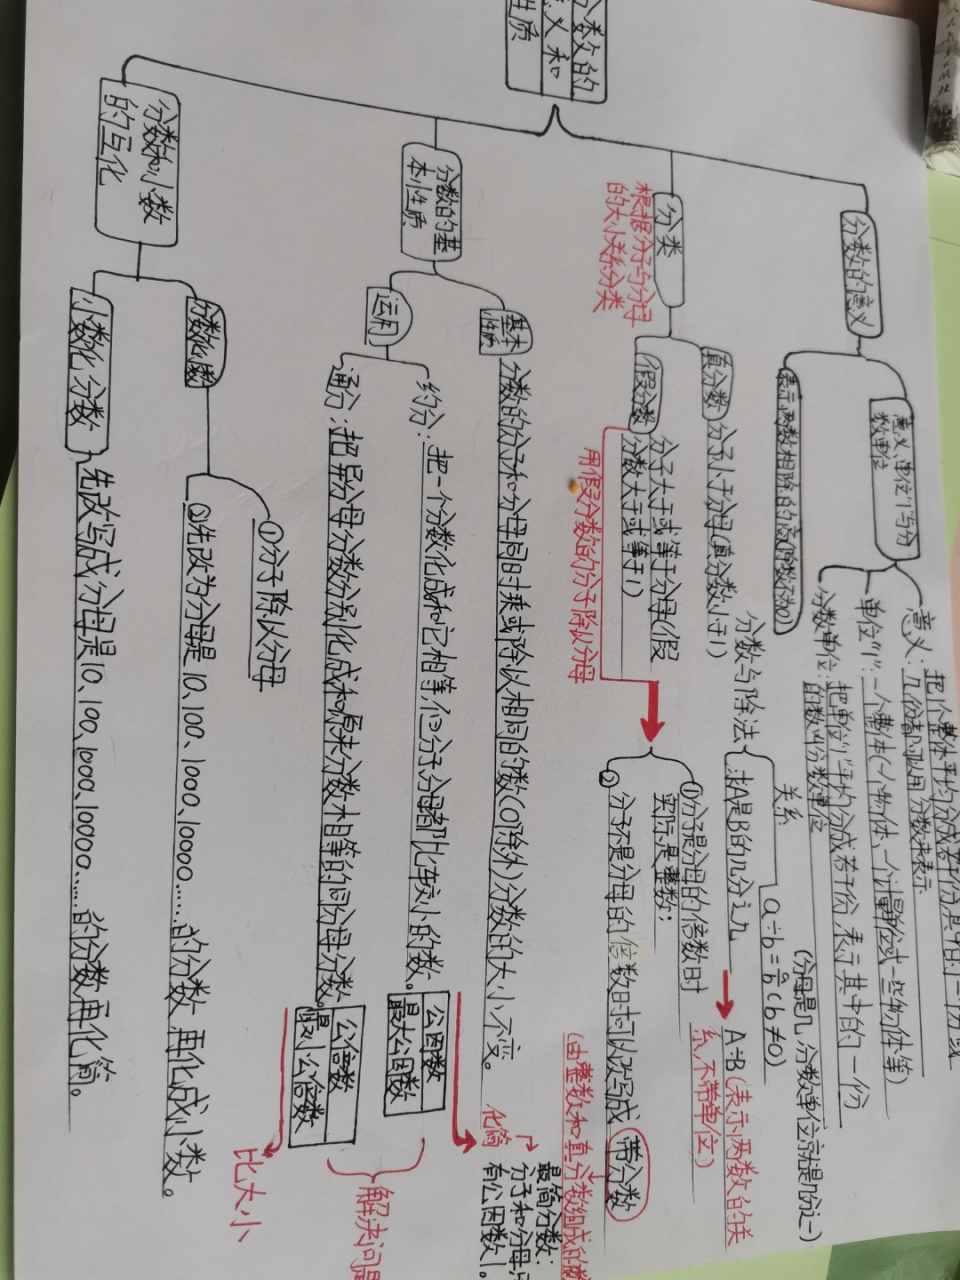 分数的
意义和
性质
分数的意义
意义、单位"1"与分
数单位
意义：把1个整体平均分成若干份,其中的一份或
几份都可以用分数来表示
单位"1"：一个整体(一个物体、一个计量单位或一些物体等)
分数单位：把单位"1"平均分成若干份 表示其中的一份
的数叫分数单位
(分母是几,分数单位就是几分之一)
表示两数相除的商(除数不为0)
分数与除法
关系
a÷b=a/b(b≠0)
求A是B的几分之几
A÷B(表示两数的关
系,不带单位)
分类
根据分子与分母
的大小关系分类
真分数
分子小于分母(真分数小于1)
假分数
分子大于或等于分母(假
分数大于或等于1)
用假分数的分子除以分母
①分子是分母的倍数时
实际是整数；
②分子不是分母的倍数时可以改写成 带分数
(由整数和真分数组成的数
分数的基
本性质
基本
性质
分数的分子和分母同时乘或除以相同的数(0除外)分数的大小不变。
运用
约分：把一个分数化成和它相等,但分子分母都比较小的数。
公因数
最大公因数
化简
最简分数：
分子和分母只
有公因数1。
通分：把异分母分数分别化成和原来分数相等的同分母分数。
公倍数
最小公倍数
解决问题
比大小
分数和小数
的互化
分数化小数
①分子除以分母
②先改为分母是10、100、1000、10000……的分数 再化成小数。
小数化分数
先改写成分母是10、100、1000、10000……的分数再化简。